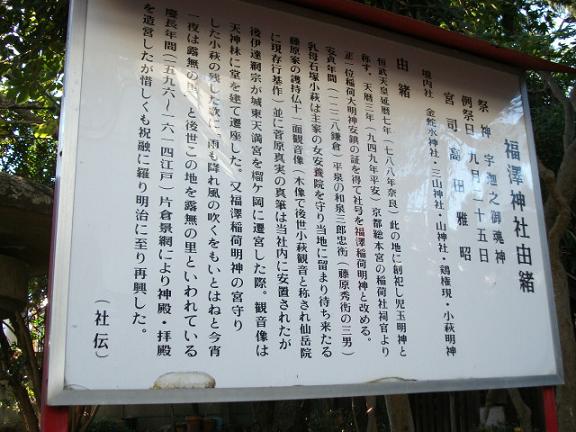 福澤神社由緒
祭神 宇迦之御魂神
例祭日 九月二十五日
宮司 高田雅昭
境内社 金蛇水神社・三山神社・山神社・鶏権現・小萩明神
由緒
桓武天皇延暦七年(七八八年奈良)此の地に創祀し児玉明神と
称す。天暦三年(九四九年平安)京都総本宮の稲荷社祠官より
正一位稲荷大明神安鎮の証を得て社号を福澤稲荷明神と改める。
安貞年間(一二二八鎌倉)平泉の和泉三郎忠衡(藤原秀衡の三男)
乳母石塚小萩は主家の女安養院を守り当地に留まり待ち来たる
藤原家の護持仏十一面観音像(木像で後世小萩観音と称され仙岳院
に現存行基作)並に菅原真実の真筆は当社内に安置されたが
後伊達綱宗が城東天満宮を榴ケ岡に遷宮した際。観音像は
天神林に堂を建て遷座した。又福澤稲荷明神の宮守り
した小萩の残した歌に、雨も降れ風の吹くをもいとはねと今宵
一夜は露無の里、と後世この地を露無の里といわれている
慶長年間(一五九六〜一六一四江戸)片倉景綱により神殿・拝殿
を造営したが惜しくも祝融に羅り明治に至り再興した。
(社伝)